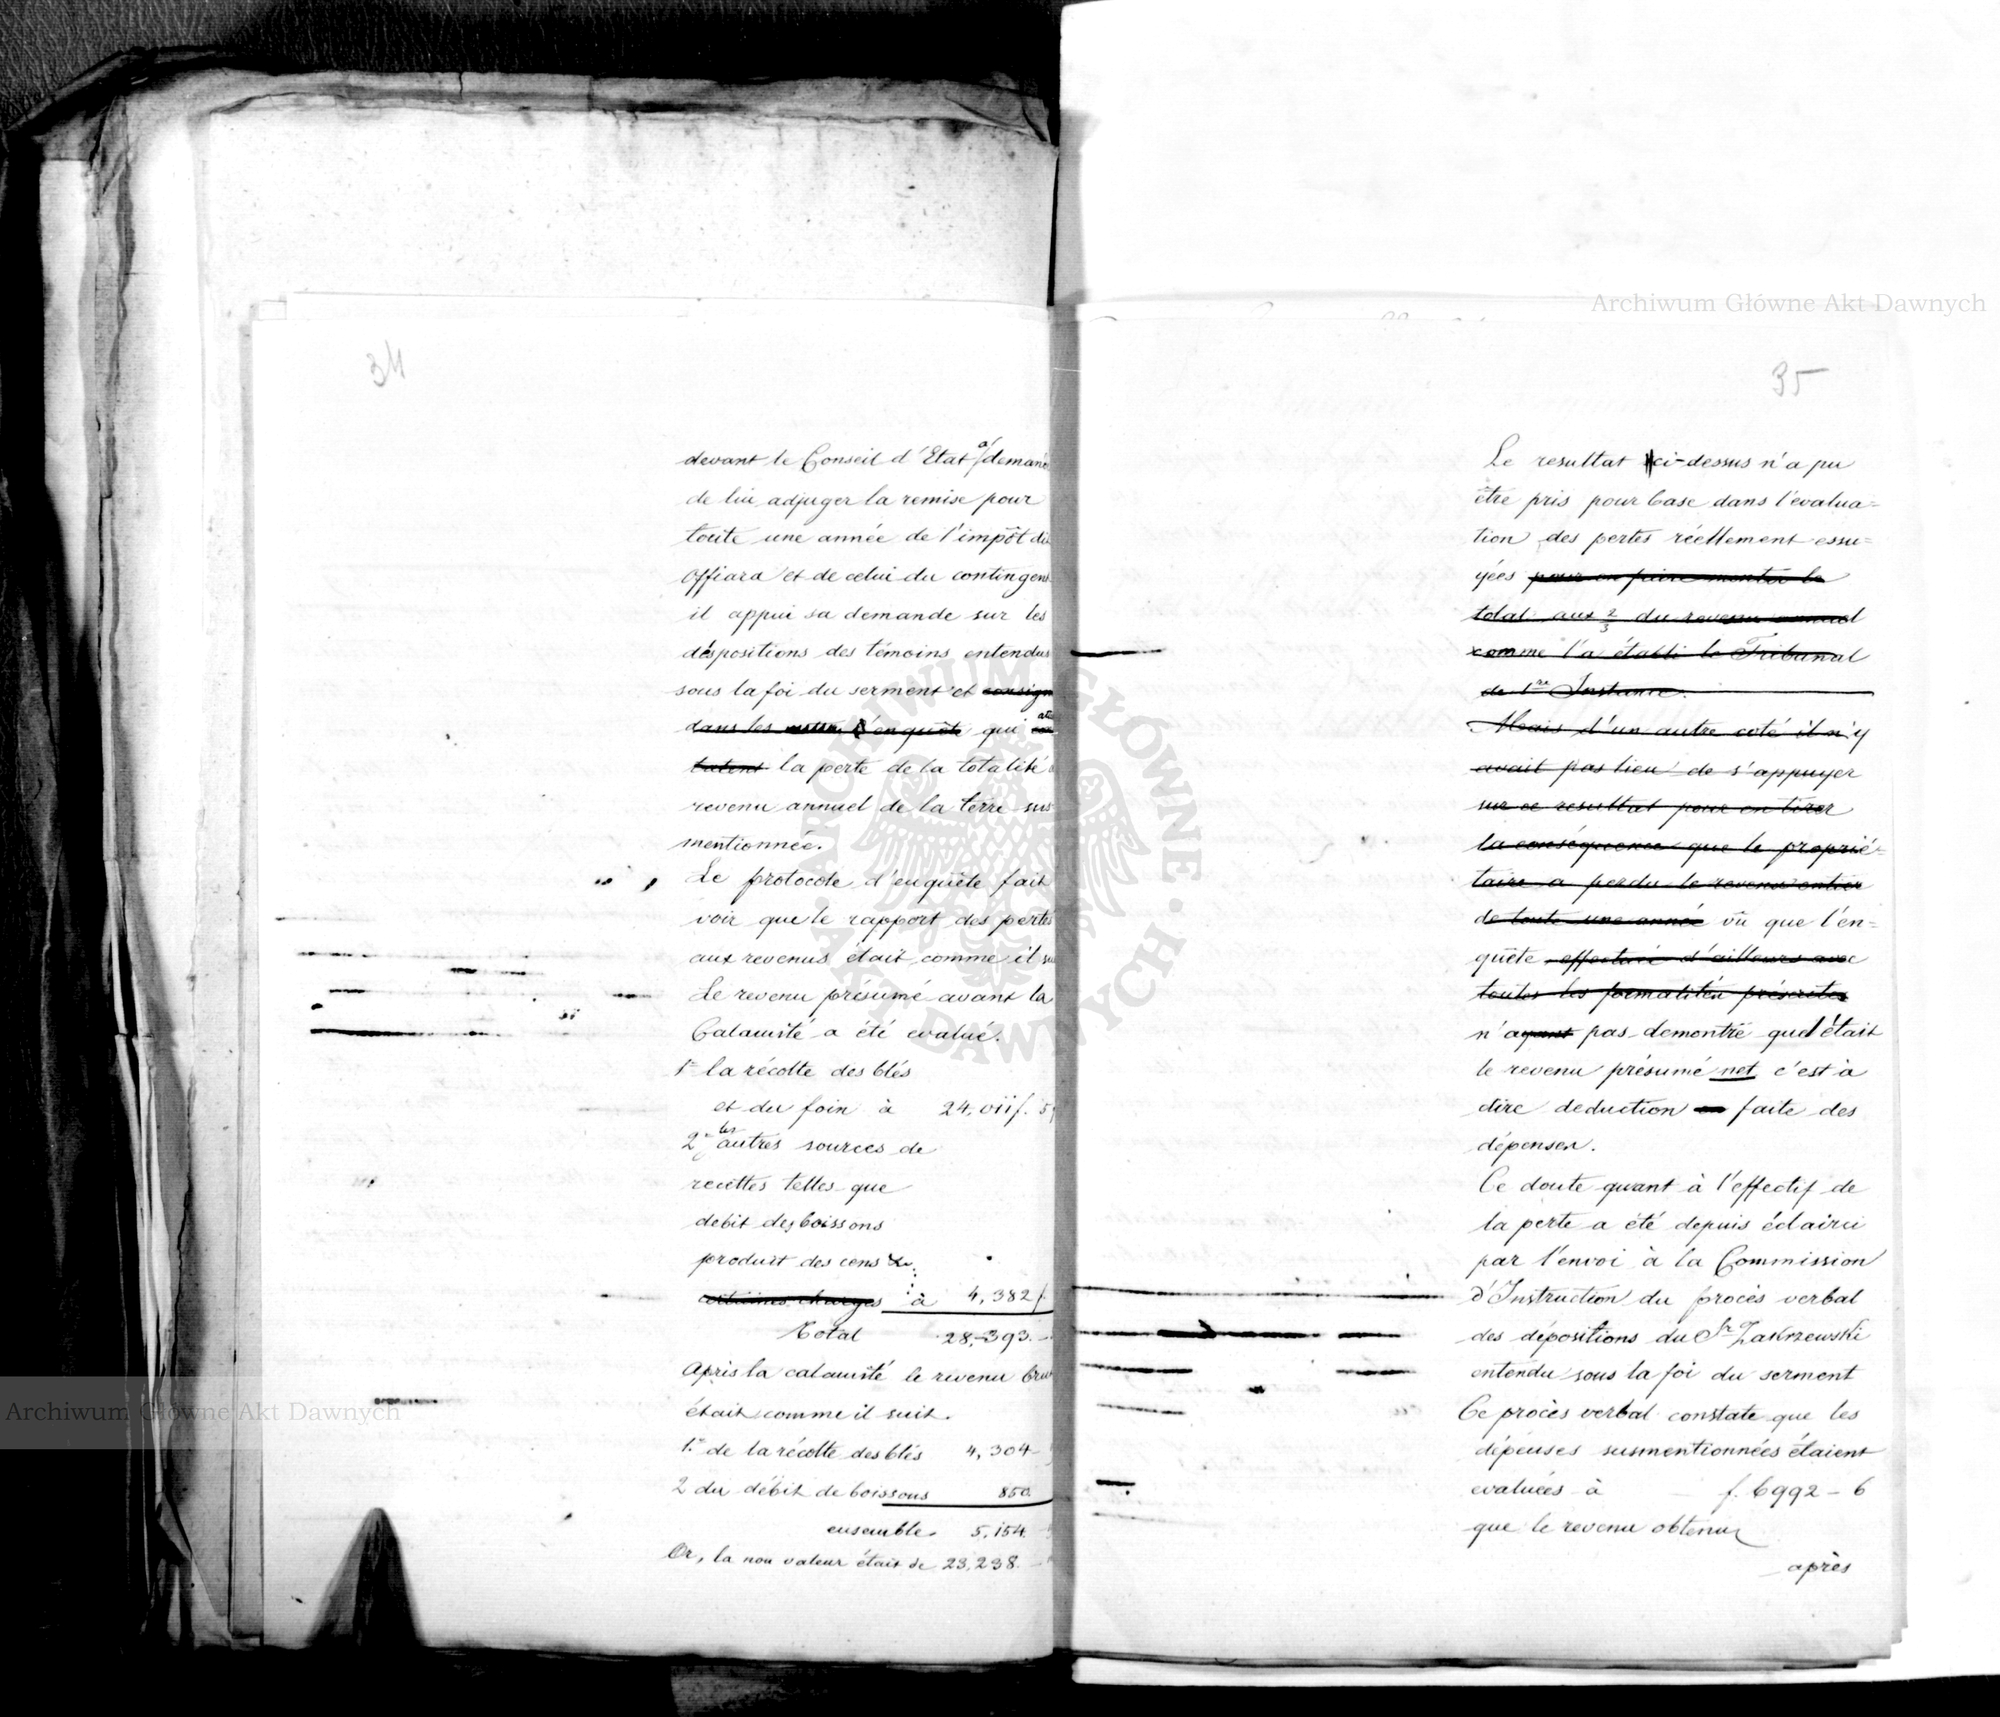 34
devant le Conseil d'Etat a demand
de lui adjuger la remise pour
toute une année de l'impôt du
Offiara et de celui du contingent
il appui sa demande sur les
déspositions des témoins entendus
sous la foi du serment et consign
dans les d'enquête qui
la perte de la totalité
revenu annuel de la terre sus
mentionnée.
Le protocole d'enquête fait
voir que le rapport des pertes
aux revenus était comme il su
Le revenu présumé avant la
Calamité a été evalué.
1° la récolte des blés
et du foin à 24,011 f. 5
2° les autres sources de
recettes telles que
debit des boissons
produit des cens &c.
certaines charges à 4,382 f.
Total 28,393.-
Après la calamité le revenu brut
était comme il suit.
1.° de la récolte des blés 4,304-
2 du débit de boissons 850.
ensemble. 5,154.
Or, la non valeur était de 23,238.-
35
Le resultat ci-dessus n'a pu
être pris pour base dans l'évalua=
tion des pertes réellement essu=
yées pour en faire monter le
total aux 2/3 du revenu annuel
comme l'a établi le Tribunal
de 1re Instance.
Mais d'un autre coté il n'y
avait pas lieu de s'appuyer
sur ce resultat pour en tirer
la conséquence que le proprié=
taire a perdu le revenu entier
de toute une année vû que l'en=
quête effectuée d'ailleurs avec
toutes les formalités préscrites
n'ayant pas demontré quel était
le revenu présumé net c'est à
dire deduction faite des
dépenses.
Ce doute quant à l'effectif de
la perte a été depuis éclairci
par l'envoi à la Commission
d'Instruction du procès verbal
des dépositions du Sr Zakrzewski
entendu sous la foi du serment
Ce procès verbal constate que les
dépenses susmentionnées étaient
evaluées à f. 6992 - 6
que le revenu obtenu
après
Archiwum Główne Akt Dawnych
Archiwum Główne Akt Dawnych
ARCHIWUM GŁÓWNE · AKT DAWNYCH ·